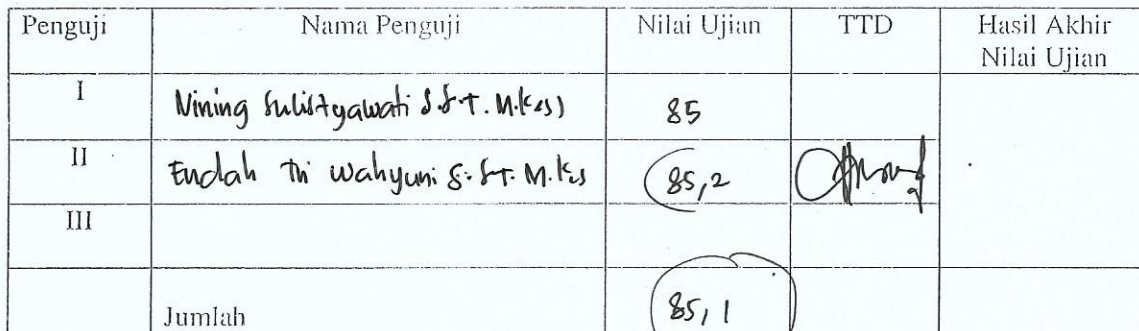 Penguji Nama Penguji Nilai Ujian TTD Hasil Akhir
Nilai Ujian
I Nining Sulistyawati S.ST. M.Kes) 85
II Endah Tri Wahyuni S.ST. M.Kes 85,2
III
Jumlah 85,1